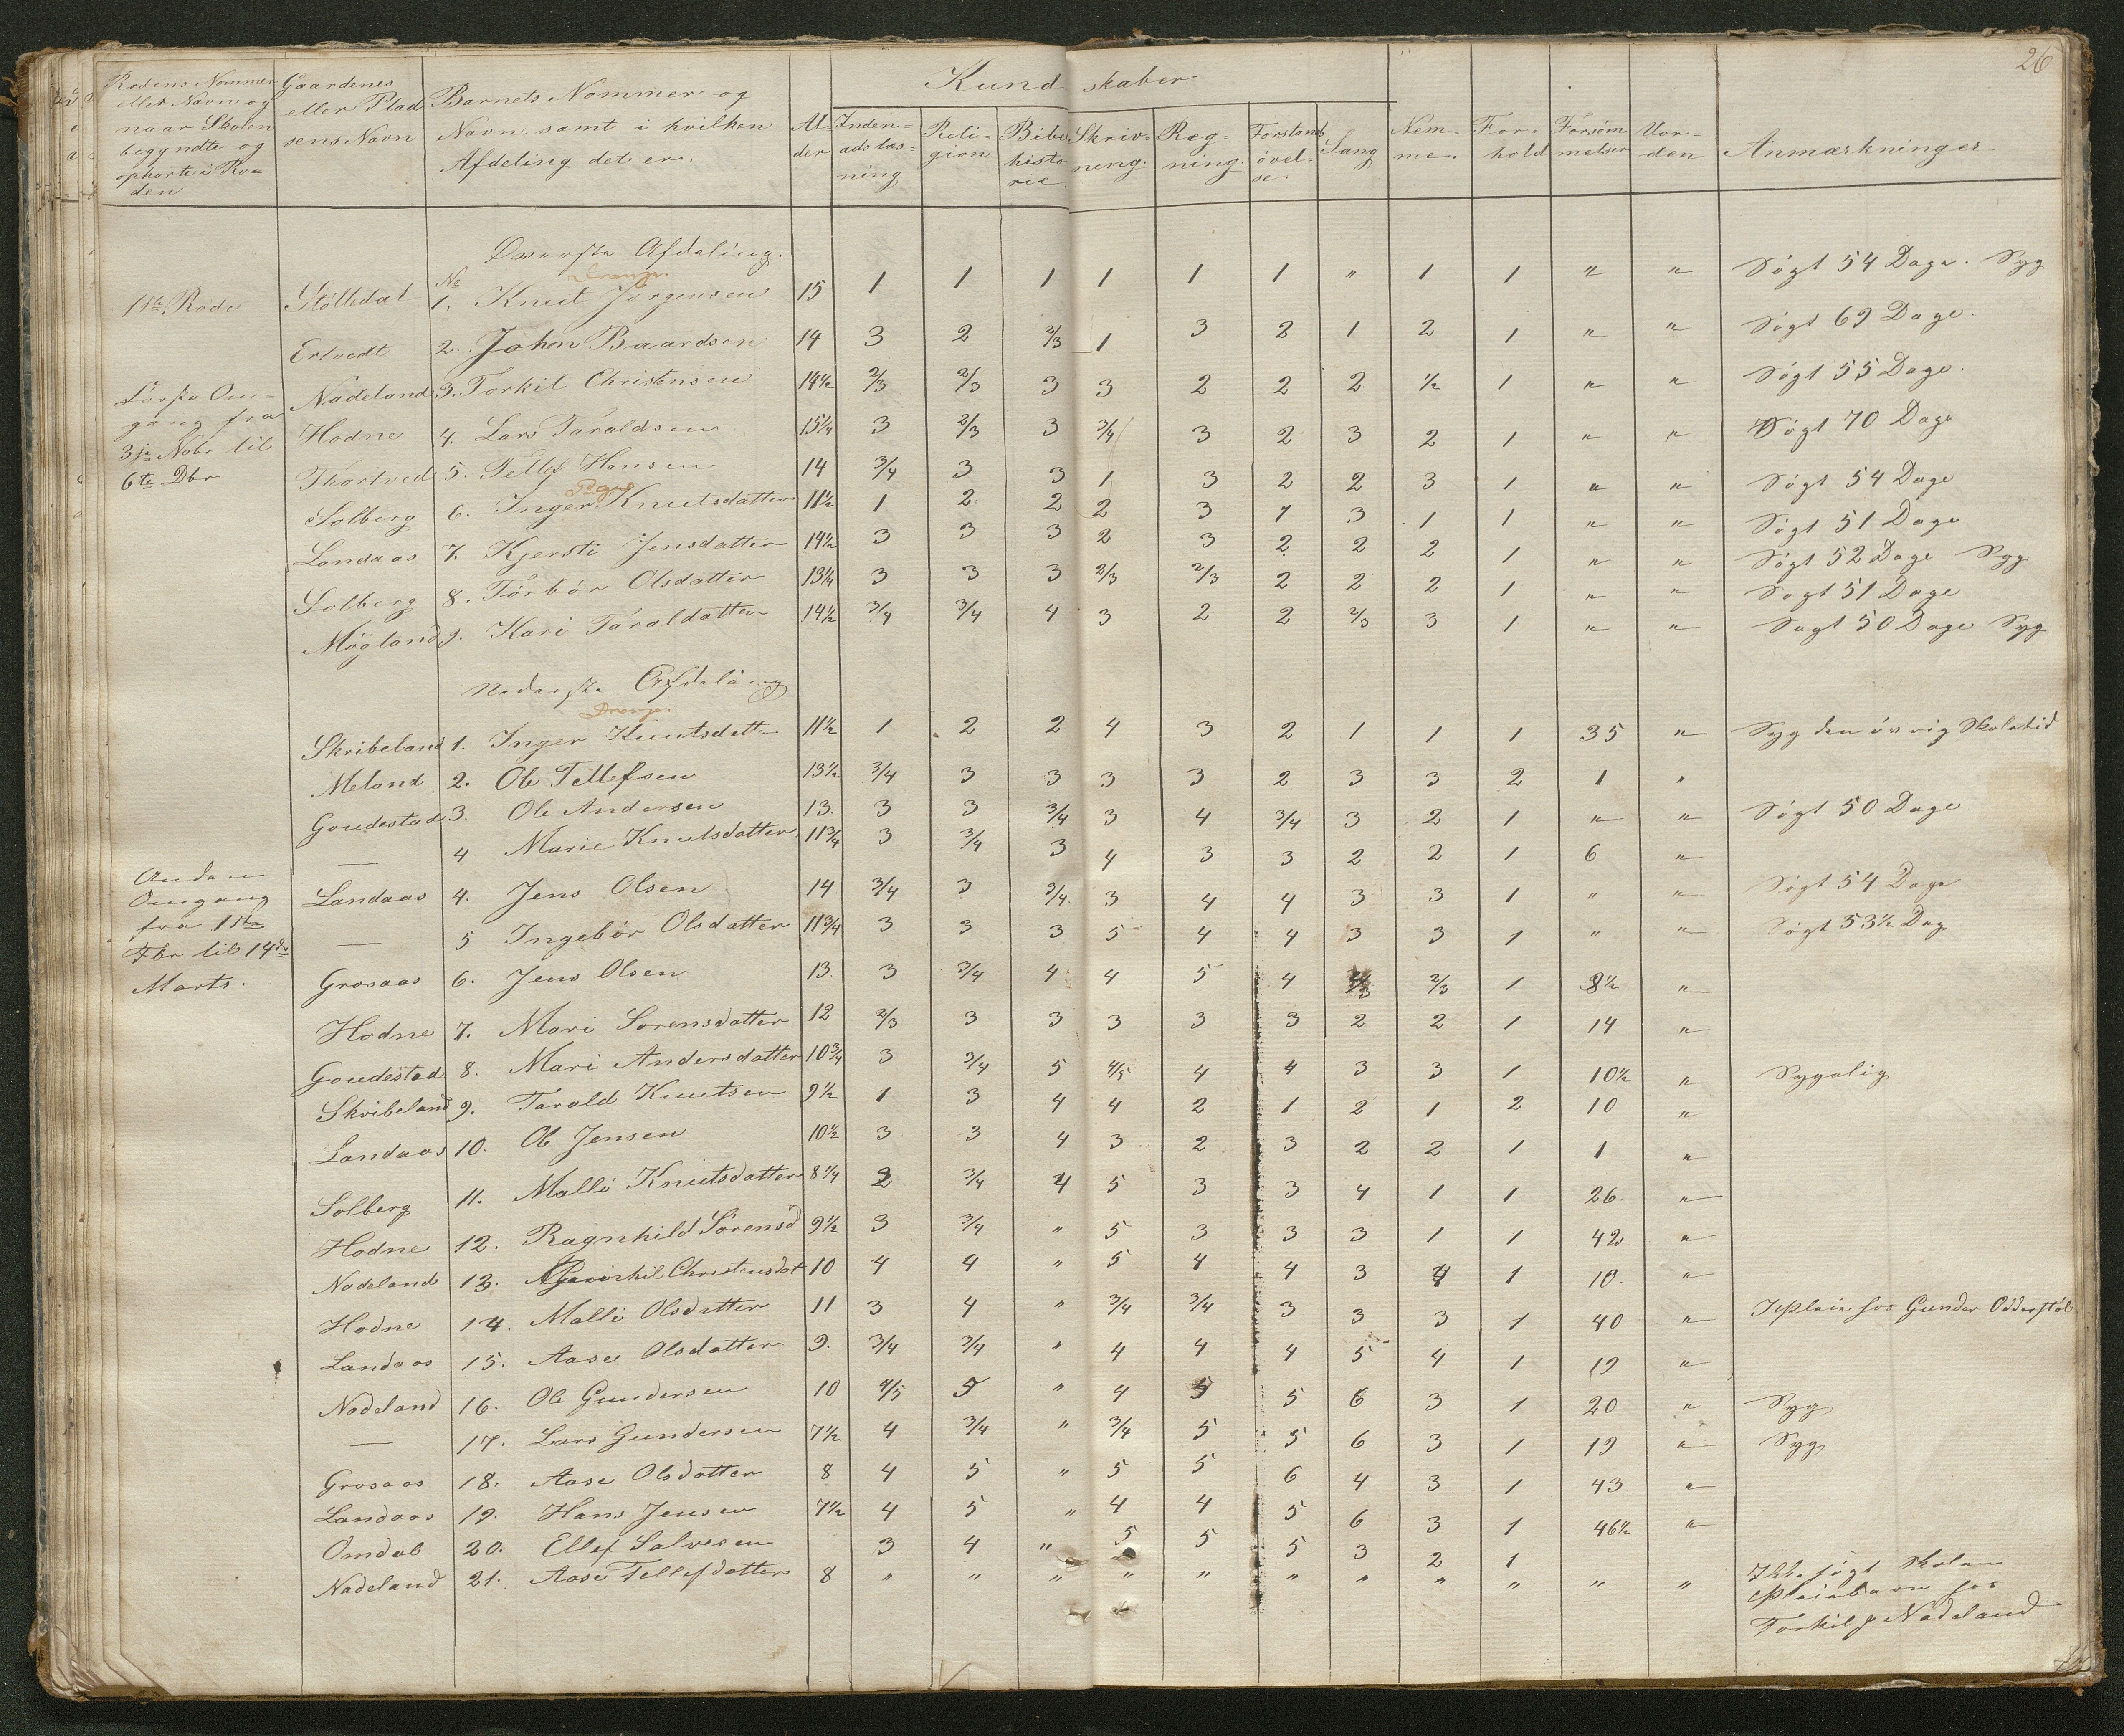 26
Rodens Nommer eller Navn og naar Skolen begyndte og ophørte i Roden | Gaardenes eller Pladsens Navn | Barnets Nommer og Navn, samt i hvilken Afdeling det er. | Alder | Kundskaber | Nemme. | Forhold | Forsømmelser | Uorden | Anmærkninger
Indenadslæsning | Religion | Bibelhistorie | Skrivning. | Regning. | Forstandsøvelse. | Sang
Øverste Afdeling.
No Drenge.
1ste Rode | Stølledal | 1. Knut Jørgensen | 15 | 1 | 1 | 1 | 1 | 1 | 1 | " | 1 | 1 | " | " | Søgt 54 Dage. Syg
Ertvedt | 2. John Baardsen | 14 | 3 | 2 | 2/3 | 1 | 3 | 2 | 1 | 2 | 1 | " | " | Søgt 69 Dage.
Første Om-
gang fra
3die Nobr til
6te Dbr
Nådeland | 3. Torkil Christensen | 14½ | 2/3 | 2/3 | 3 | 3 | 2 | 2 | 2 | ½ | 1 | " | " | Søgt 55 Dage.
Hodne | 4. Lars Taraldsen | 15¼ | 3 | 2/3 | 3 | 3/4 | 3 | 2 | 3 | 2 | 1 | " | " | Søgt 70 Dage
Thortved | 5. Tellef Hansen | 14 | 3/4 | 3 | 3 | 1 | 3 | 2 | 2 | 3 | 1 | " | " | Søgt 54 Dage
Piger
Solberg | 6. Inger Knutsdatter | 11½ | 1 | 2 | 2 | 2 | 3 | 1 | 3 | 1 | 1 | " | " | Søgt 51 Dage
Landaas | 7. Kjersti Jensdatter | 14½ | 3 | 3 | 3 | 2 | 3 | 2 | 2 | 2 | 1 | " | " | Søgt 52 Dage Syg
Solberg | 8. Torbør Olsdatter | 13¼ | 3 | 3 | 3 | 2/3 | 2/3 | 2 | 2 | 2 | 1 | " | " | Søgt 51 Dage
Møgland | 9. Kari Taraldatter | 14½ | 3/4 | 3/4 | 4 | 3 | 2 | 2 | 2/3 | 3 | 1 | " | " | Søgt 50 Dage Syg
Nederste Afdeling
Drenge.
Skribeland | 1. Inger Knutsdatter | 11½ | 1 | 2 | 2 | 4 | 3 | 2 | 1 | 1 | 1 | 35 | " | Syg den øvrig Skoletid
Meland | 2. Ole Tellefsen | 13½ | 3/4 | 3 | 3 | 3 | 3 | 2 | 3 | 3 | 2 | 1 | "
Goudestad | 3. Ole Andersen | 13. | 3 | 3 | 3/4 | 3 | 4 | 3/4 | 3 | 2 | 1 | " | " | Søgt 50 Dage
— | 4 Marie Knutsdatter | 11¾ | 3 | 3/4 | 3 | 4 | 3 | 3 | 2 | 2 | 1 | 6 | "
Anden
Omgang
fra 11te
Fbr til 14de
Marts.
Landaas | 4. Jens Olsen | 14 | 3/4 | 3 | 3/4 | 3 | 4 | 4 | 3 | 3 | 1 | " | " | Søgt 54 Dage
— | 5 Ingebør Olsdatter | 11¾ | 3 | 3 | 3 | 5 | 4 | 4 | 3 | 3 | 1 | " | " | Søgt 53½ Dag
Grosaas | 6. Jens Olsen | 13. | 3 | 3/4 | 4 | 4 | 5 | 4 | | 2/3 | 1 | 8½ | "
Hodne | 7. Mari Sorensdatter | 12 | 2/3 | 3 | 3 | 3 | 3 | 3 | 2 | 2 | 1 | 14 | "
Goudestad | 8. Mari Andersdatter | 10¾ | 3 | 3/4 | 5 | 4/5 | 4 | 4 | 3 | 3 | 1 | 10½ | " | Sygelig
Skribeland | 9. Tarald Knutsen | 9½ | 1 | 3 | 4 | 4 | 2 | 1 | 2 | 1 | 2 | 10 | "
Landaas | 10. Ole Jensen | 10½ | 3 | 3 | 4 | 3 | 2 | 3 | 2 | 2 | 1 | 1 | "
Solberg | 11. Malli Knutsdatter | 8¼ | 2 | 3/4 | 4 | 5 | 3 | 3 | 4 | 1 | 1 | 26. | "
Hodne | 12. Ragnhild Sørensd | 9½ | 3 | 3/4 | " | 5 | 3 | 3 | 3 | 1 | 1 | 42 | "
Nadeland | 13. Christensdat | 10 | 4 | 4 | " | 5 | 4 | 4 | 3 | 4 | 1 | 10. | "
Hodne | 14. Malli Olsdatter | 11 | 3 | 4 | " | 3/4 | 3/4 | 3 | 3 | 3 | 1 | 40 | " | I Pleie hos Gunder Odderstøl
Landaas | 15. Aase Olsdatter | 9. | 3/4 | 3/4 | " | 4 | 4 | 4 | 5 | 4 | 1 | 19 | "
Nadeland | 16. Ole Gundersen | 10 | 4/5 | 5 | " | 4 | 5 | 5 | 6 | 3 | 1 | 20 | " | Syg
— | 17. Lars Gundersen | 7½ | 4 | 3/4 | " | 3/4 | 5 | 5 | 6 | 3 | 1 | 19 | " | Syg
Grosaas | 18. Aase Olsdatter | 8 | 4 | 5 | " | 5 | 5 | 6 | 4 | 3 | 1 | 43 | "
Landaas | 19. Hans Jensen | 7½ | 4 | 5 | " | 4 | 4 | 5 | 6 | 3 | 1 | 46½ | "
Omdal | 20. Ellef Salvesen | | 3 | 4 | " | 5 | 5 | 5 | 3 | 2 | 1
Nadeland | 21. Aase Tellefdatter | 8 | " | " | " | " | " | " | " | " | " | " | " | Ikke søgt Skolen
Pleiebarn hos
Torkil p Nadeland